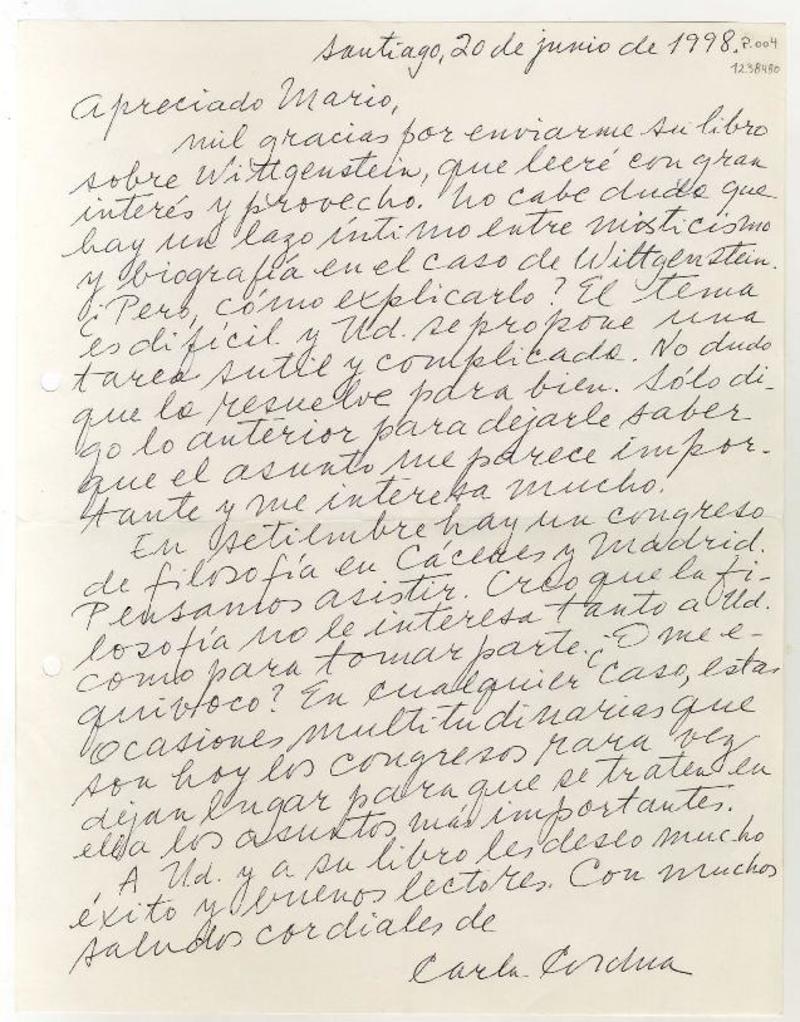 Santiago, 20 de junio de 1998.
P.004
1238480
Apreciado Mario,
mil gracias por enviarme su libro
sobre Wittgenstein, que leeré con gran
interés y provecho. No cabe duda que
hay un lazo íntimo entre misticismo
y biografía en el caso de Wittgenstein.
¡Pero, cómo explicarlo? El tema
es difícil y Ud. se propone una
tarea sutil y complicada. No dudo
que la resuelve para bien. Sólo di-
go lo anterior para dejarle saber
que el asunto me parece impor-
tante y me interesa mucho.
En setiembre hay un congreso
de filosofía en Cáceres y Madrid.
Pensamos asistir. Creo que la fi-
losofía no le interesa tanto a Ud.
como para tomar parte. ¿O me e-
quivoco? En cualquier caso, estas
ocasiones multitudinarias que
son hoy los congresos rara vez
dejan lugar para que se traten en
ella los asuntos más importantes.
A Ud. y a su libro les deseo mucho
éxito y buenos lectores. Con muchos
saludos cordiales de
Carla Cordua